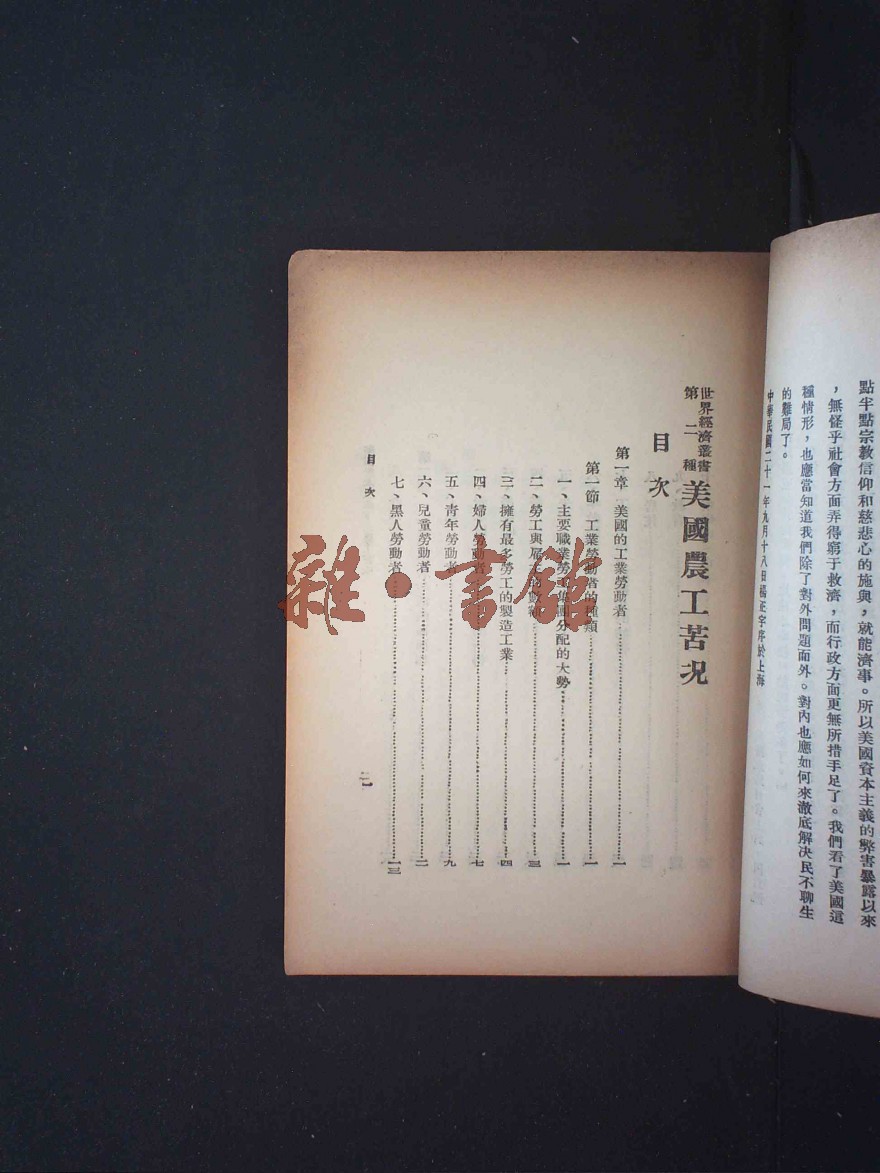 點半點宗教信仰和慈悲心的施與，就能濟事。所以美國資本主義的弊害暴露以來
，無怪乎社會方面弄得窮于救濟，而行政方面更無所措手足了。我們看了美國這
種情形，也應當知道我們除了對外問題而外。對內也應如何來澈底解决民不聊生
的難局了。
中華民國二十一年九月十八日楊正宇序於上海
世界經濟叢書
第二種
美國農工苦况
目次
第一章 美國的工業勞動者……一
第一節 工業勞動者的種類……一
一、主要職業勞工集團分配的大勢……一
二、勞工與雇主的數額……三
三、擁有最多勞工的製造工業……四
四、婦人勞動者……七
五、青年勞動者……九
六、兒童勞動者……二
七、黑人勞動者……一三
目次
雜·書館